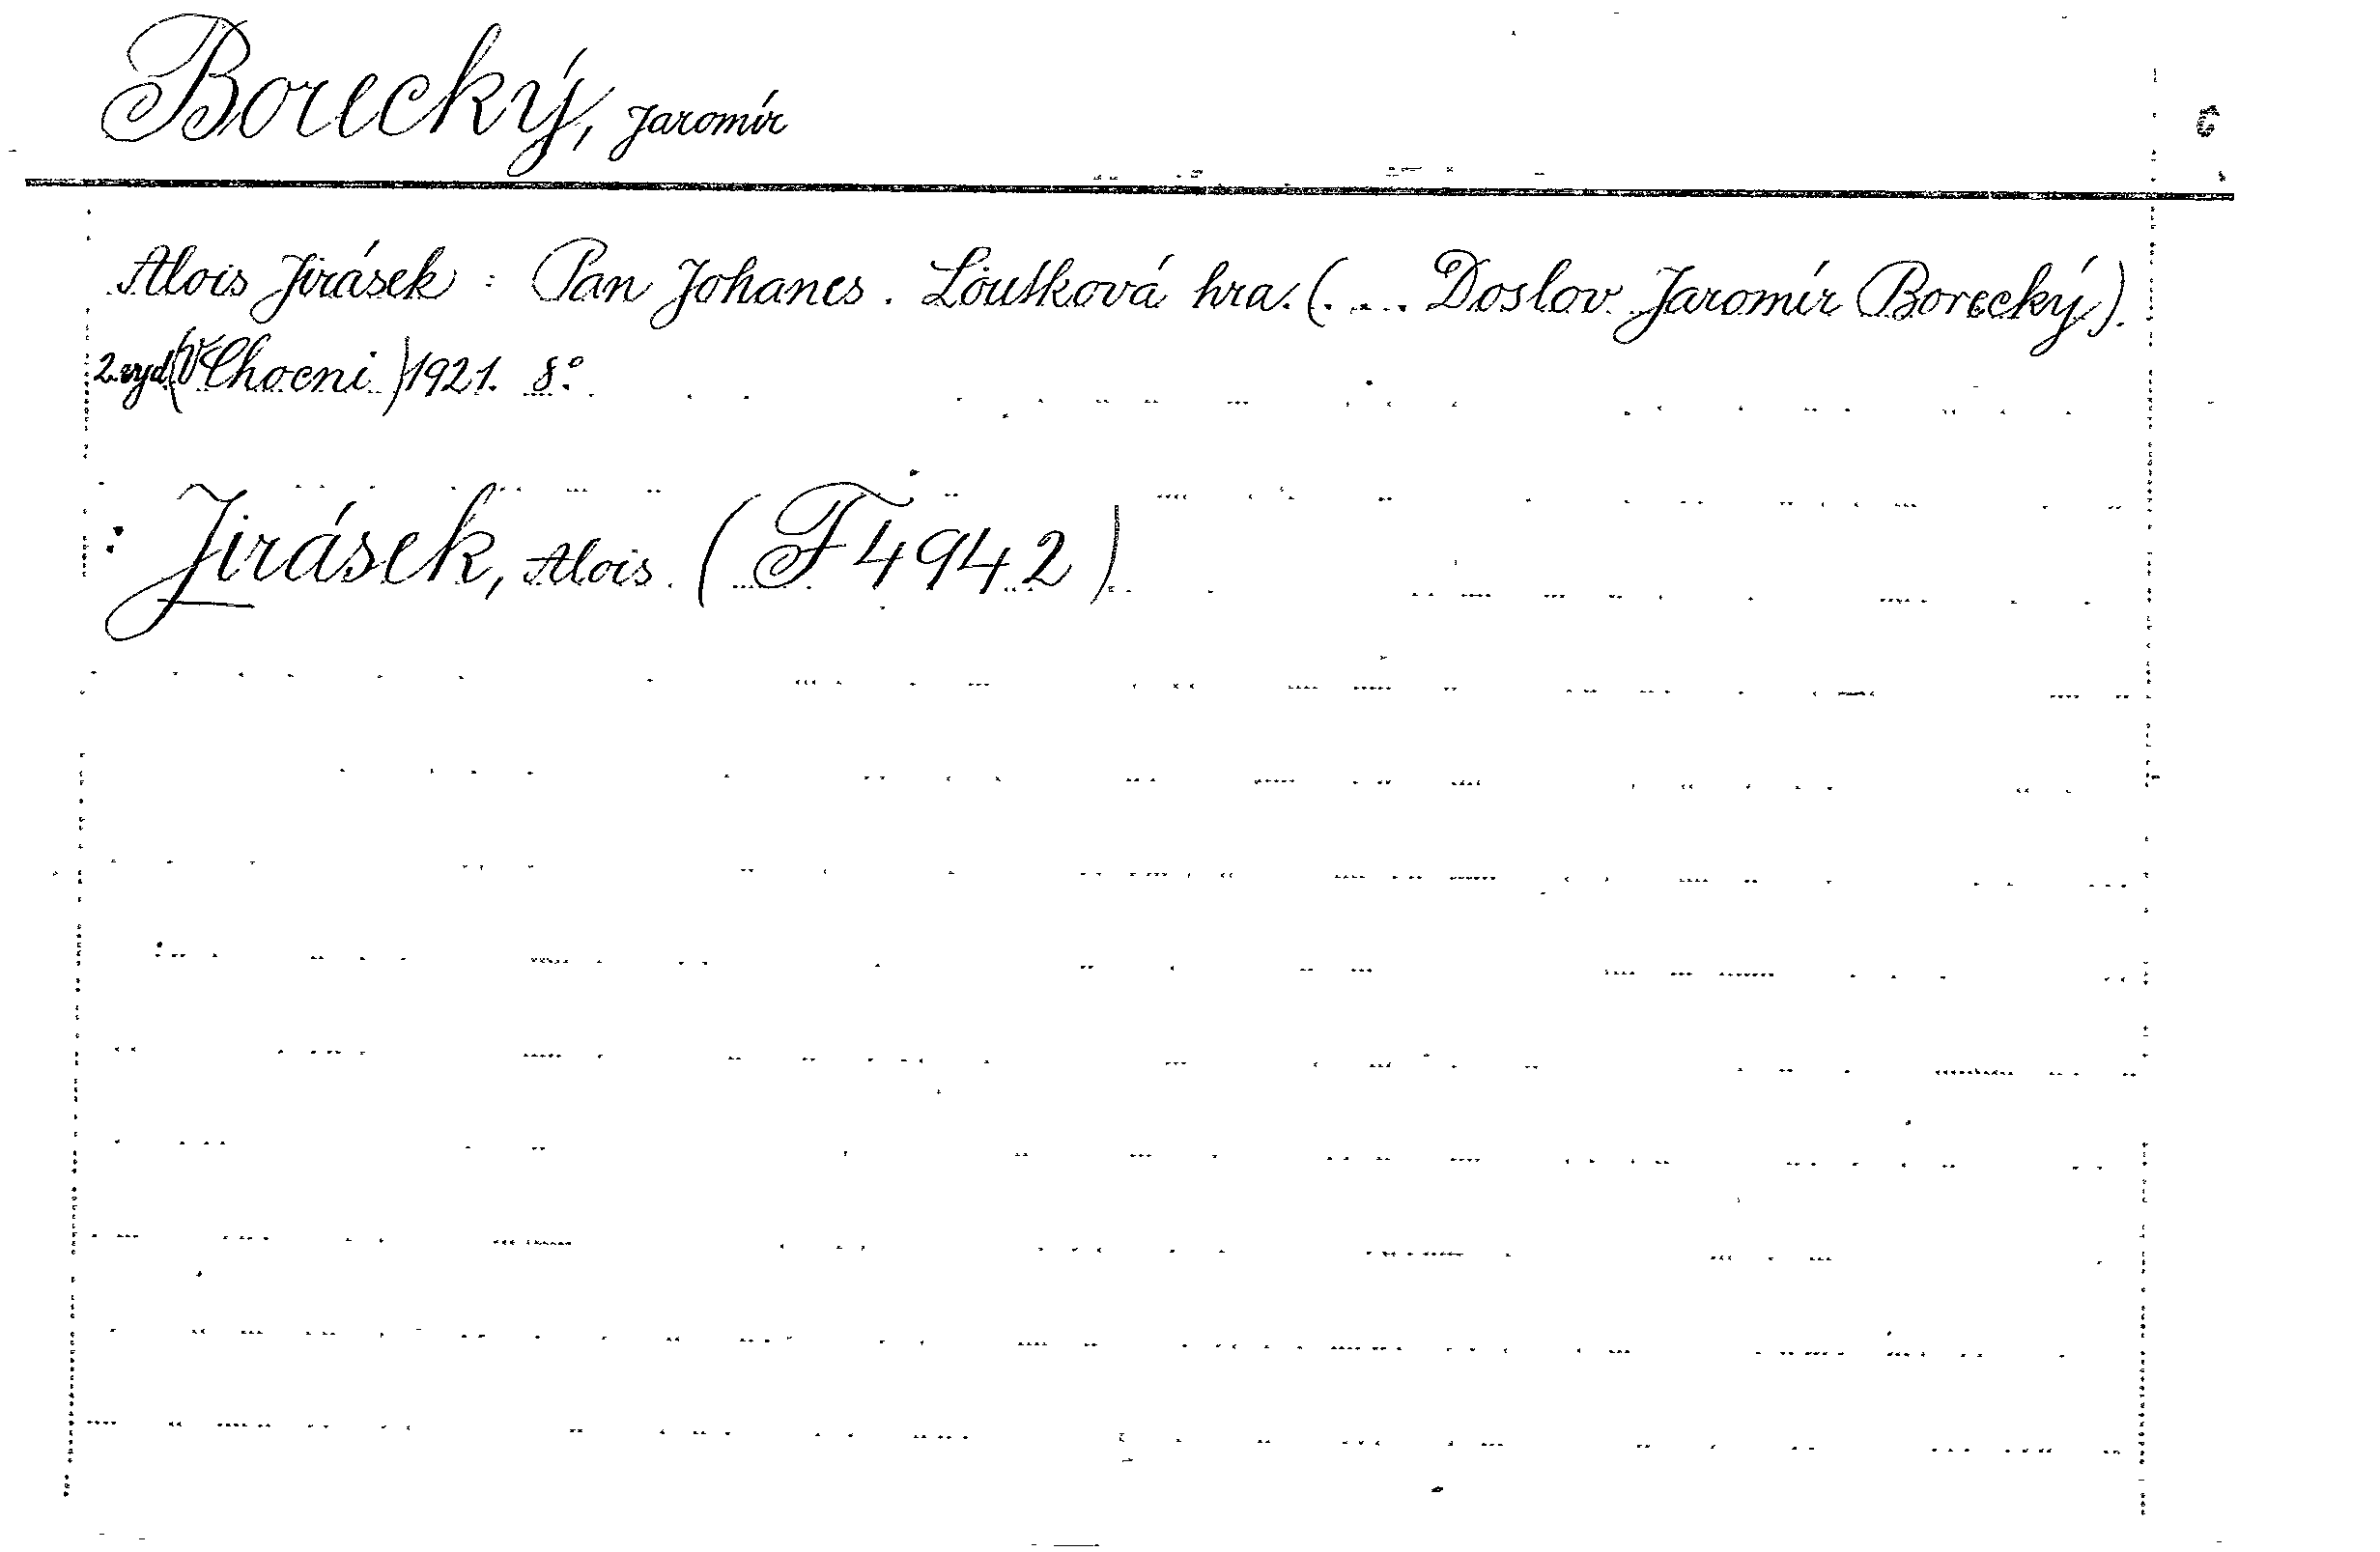 Borecký, Jaromír
Alois Jirásek : Pan Johanes. Loutková hra. (.... Doslov Jaromír Borecký).
2. vyd. (V Chocni) 1921. 8°.
: Jirásek, Alois. (F 4942)